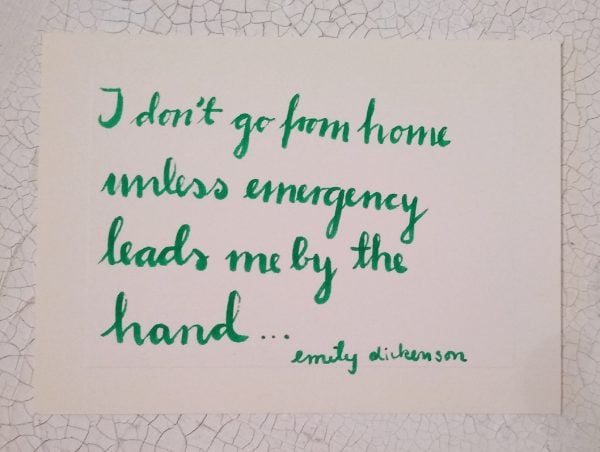 I don't go from home
unless emergency
leads me by the
hand...
emily dickenson